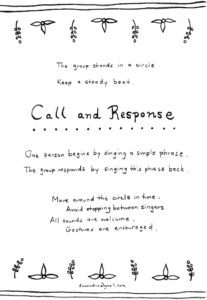 The group stands in a circle
Keep a steady beat
Call and Response
One person begins by singing a simple phrase.
The group responds by singing this phrase back.
Move around the circle in time.
Avoid stopping between singers
All sounds are welcome.
Gestures are encouraged.